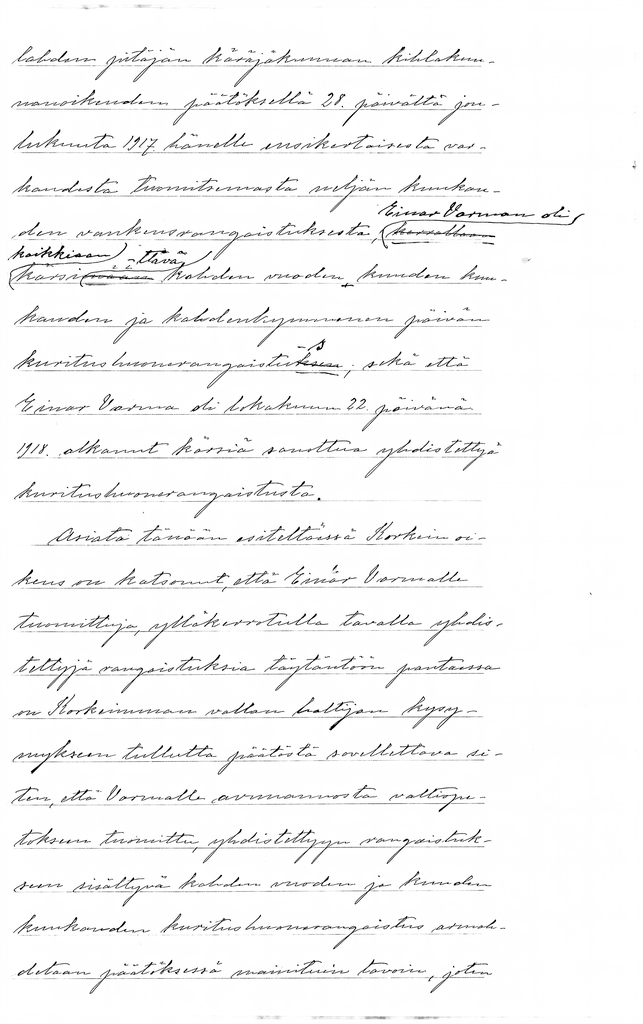 lahden pitäjän käräjäkunnan kihlakun-
nanoikeuden päätöksellä 28. päivältä jou-
lukuuta 1917 hänelle ensikertaisesta var-
kaudesta tuomitsemasta neljän kuukau-
Einar Varman oli
den vankeusrangaistuksesta,
kaikkiaan -ttävä
kärsi kahden vuoden, kuuden kuu-
kauden ja kahdenkymmenen päivän
kuritushuonerangaistuksen; sekä että
Einar Varma oli lokakuun 22. päivänä
1918. alkanut kärsiä sanottua yhdistettyä
kuritushuonerangaistusta.
Asiata tänään esiteltäissä Korkein oi-
keus on katsonut, että Einar Varmalle
tuomittuja, ylläkerrotulla tavalla yhdis-
tettyjä rangaistuksia täytäntöön pantaessa
on Korkeimman vallan haltijan kysy-
mykseen tullutta päätöstä sovellettava si-
ten, että Varmalle avunannosta valtiope-
tokseen tuomittu, yhdistettyyn rangaistuk-
seen sisältyvä kahden vuoden ja kuuden
kuukauden kuritushuonerangaistus armah-
detaan päätöksessä mainituin tavoin, joten